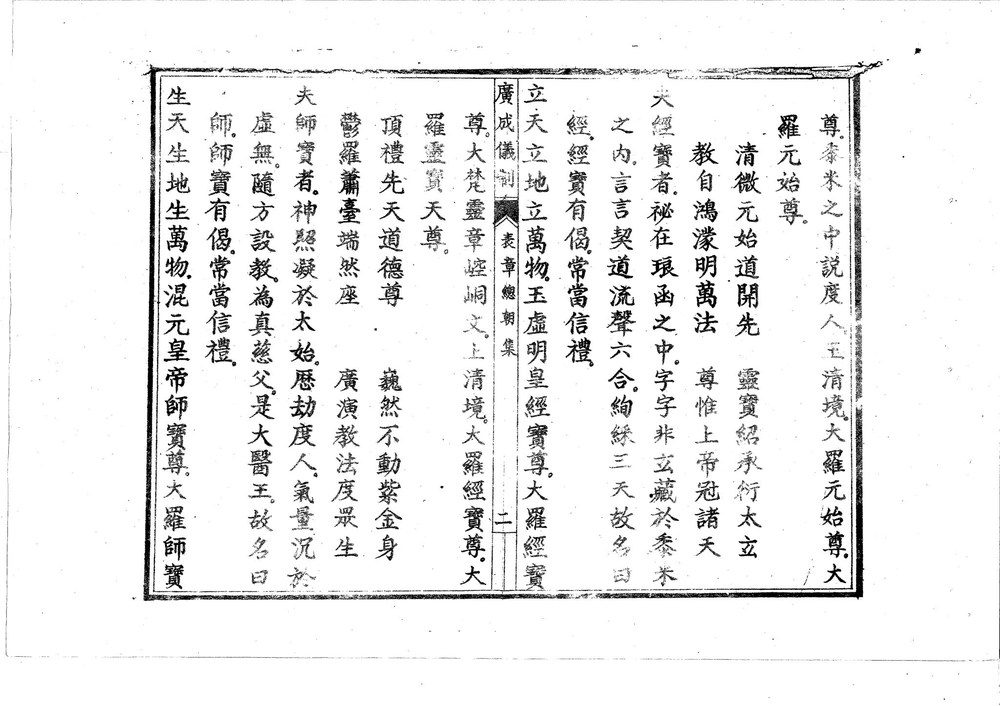 尊。黍米之中説度人。玉清境。大羅元始尊。大
羅元始尊。
清微元始道開先　靈寶紹承衍太玄
教自鴻濛明萬法　尊惟上帝冠諸天
夫經寶者。祕在琅函之中。字字非玄。藏於黍米
之内。言言契道。流聲六合。絢綵三天。故名曰
經。經寶有偈。常當信禮。
立天立地立萬物。玉虛明皇經寶尊。大羅經寶
廣成儀制　表章總朝集　二
尊。大梵靈章崆峒文。上清境。大羅經寶尊。大
羅靈寶天尊。
頂禮先天道德尊　巍然不動紫金身
鬱羅蕭臺端然座　廣演教法度眾生
夫師寶者。神照凝於太始。歷劫度人。氣量沉於
虛無。隨方設教。為真慈父。是大醫王。故名曰
師。師寶有偈。常當信禮。
生天生地生萬物。混元皇帝師寶尊。大羅師寶